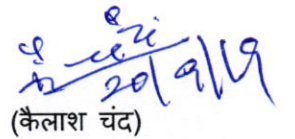 20/9/19
(कैलाश चंद)